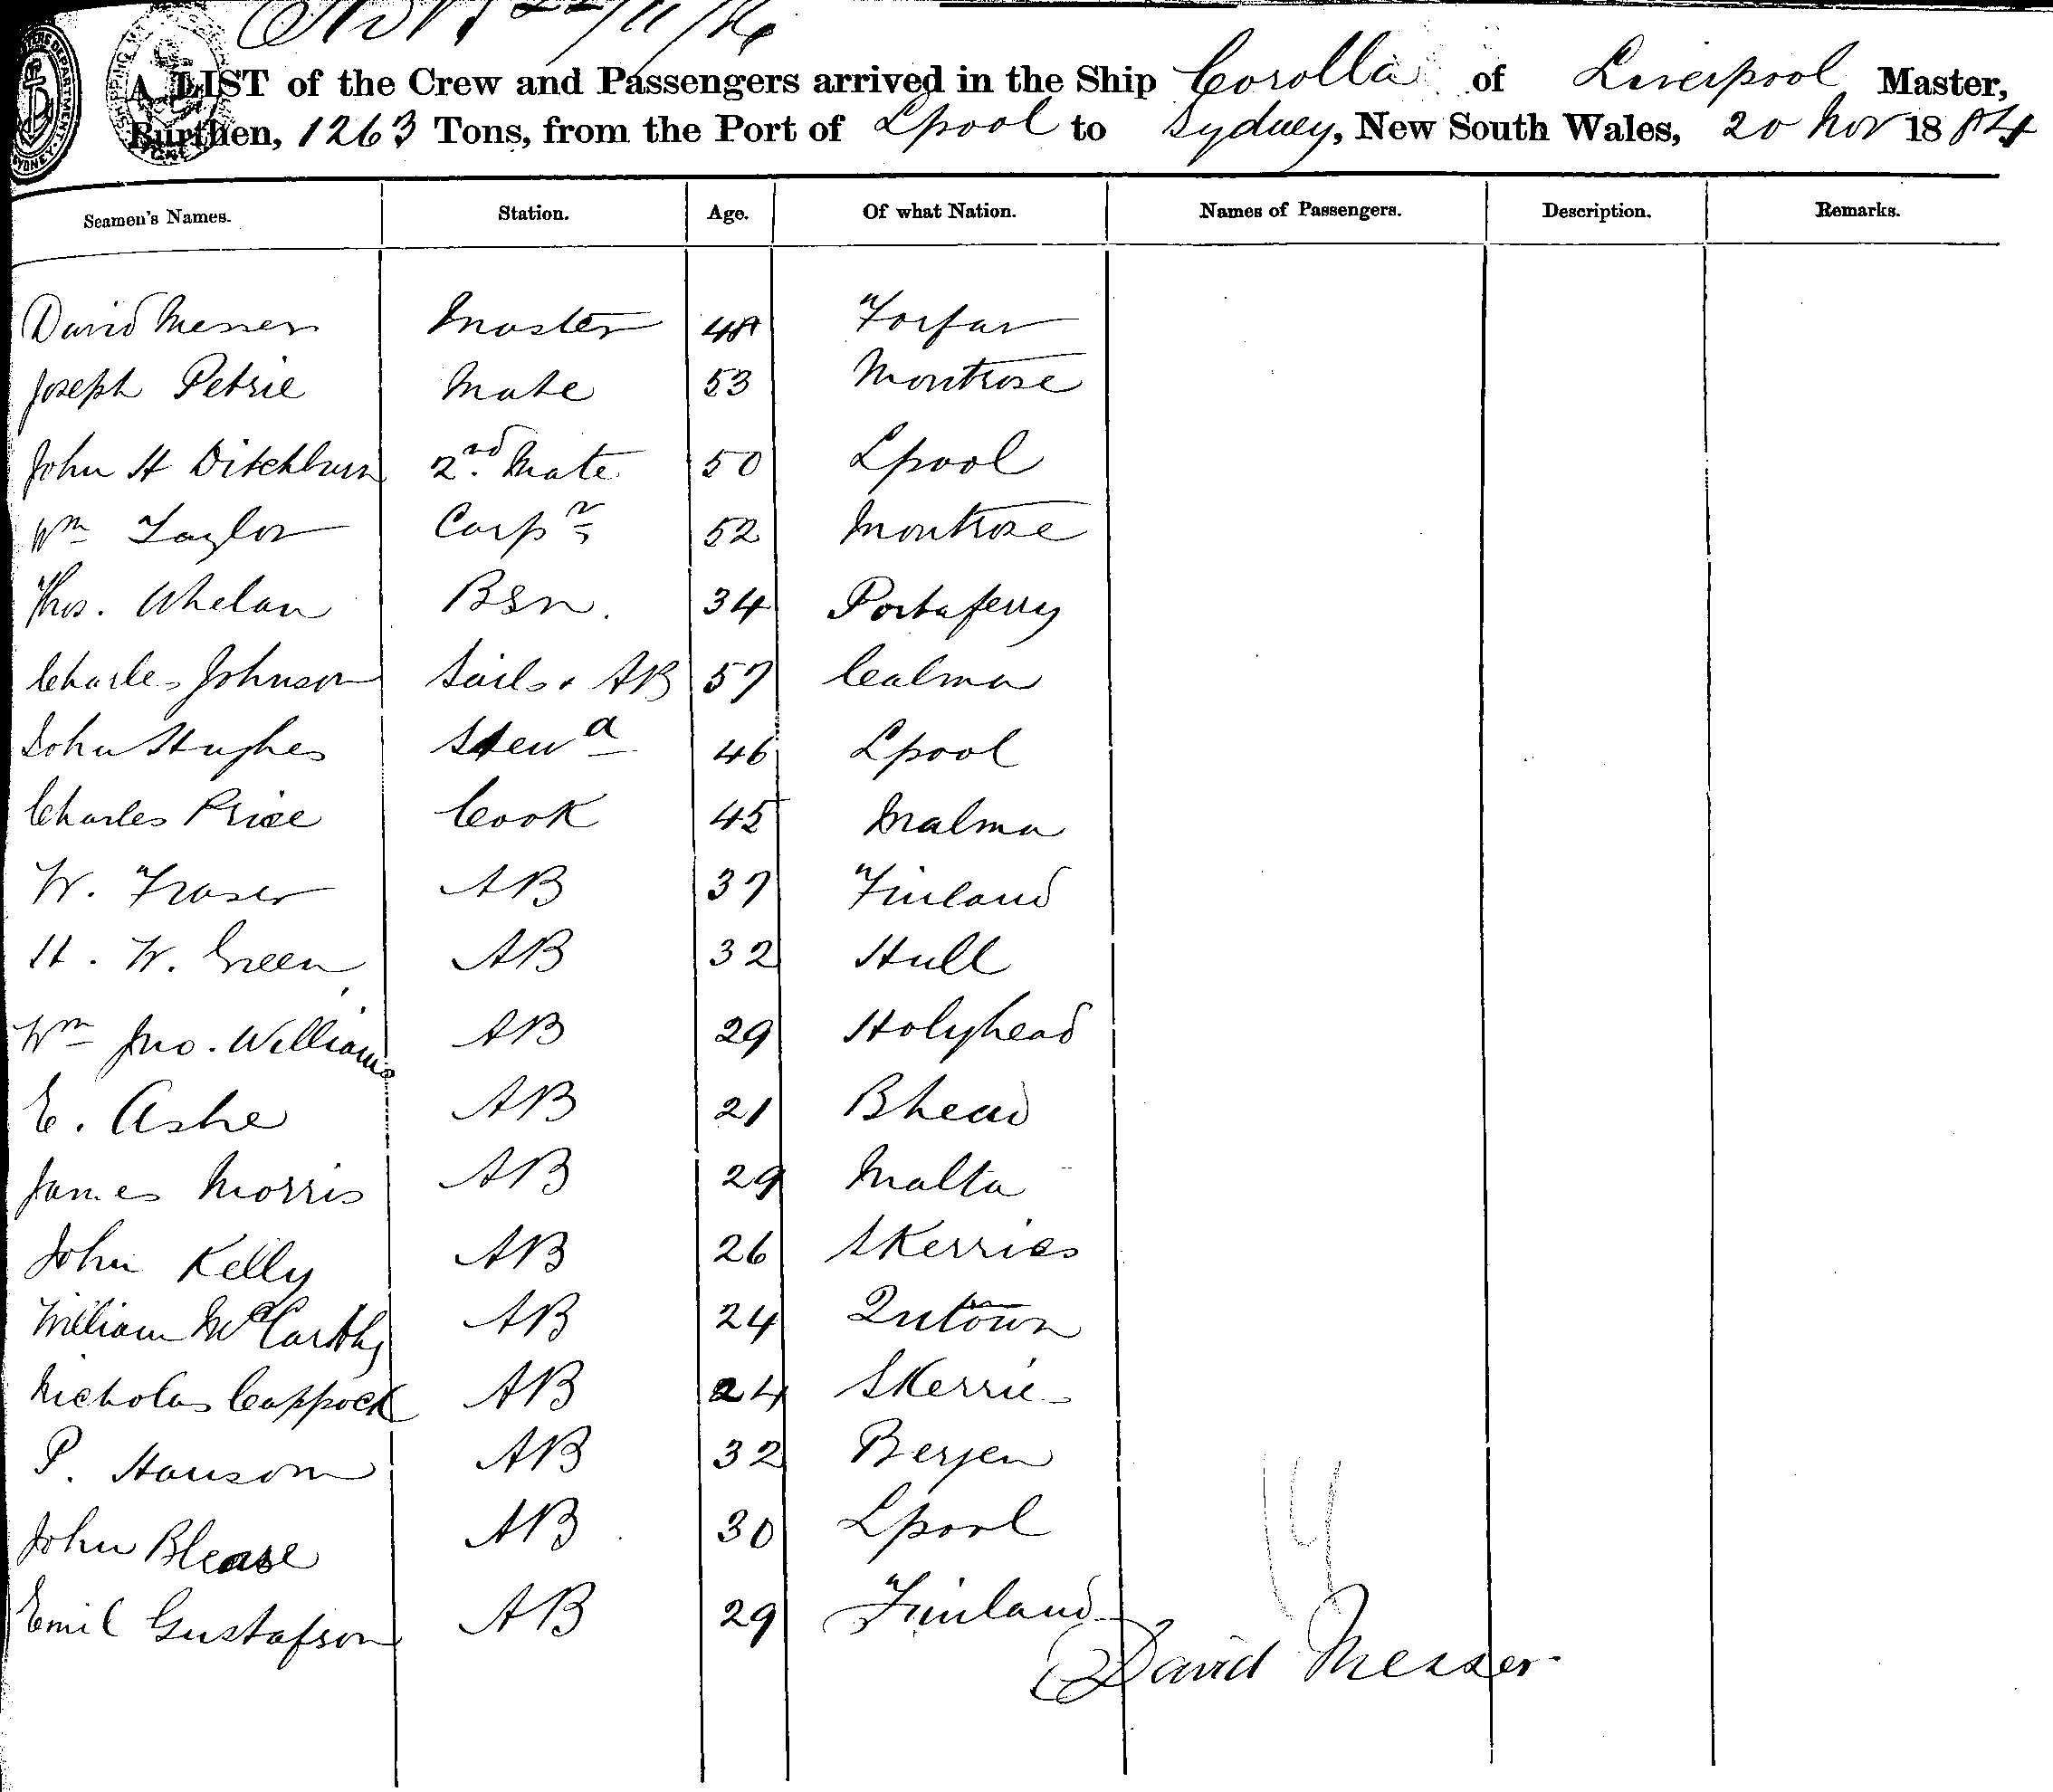 A LIST of the Crew and Passengers arrived in the Ship Corolla of Liverpool Master,
Burthen, 1263 Tons, from the Port of Lpool to Sydney, New South Wales, 20 Nov 1884
Seamen's Names. Station. Age. Of what Nation. Names of Passengers. Description. Remarks.
David Messer Master 48 Forfar
Joseph Petrie Mate 53 Montrose
John H Ditchburn 2nd Mate 50 Lpool
Wm Taylor Carpr 52 Montrose
Thos. Whelan BSn. 34 Portaferry
Charles Johnson Sails & AB 57 Calma
John Hughes Stewd 46 Lpool
Charles Price Cook 45 Malma
W. Fraser AB 37 Finland
H. W. Green AB 32 Hull
Wm Jno. Williams AB 29 Holyhead
E. Ashe AB 21 Bhead
James Morris AB 29 Malta
John Kelly AB 26 Skerries
William McCarthy AB 24 Qutown
Nicholas Cappock AB 24 Skerries
P. Hansom AB 32 Bergen
John Blease AB 30 Lpool
Emil Gustafson AB 29 Finland
14
David Messer